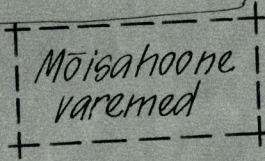 Mõisahoone
varemed